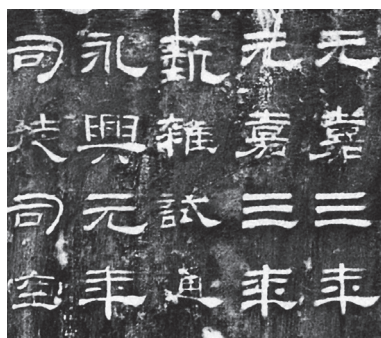 元嘉三年
元嘉三年
藝雜試通
永興元年
司徒司空